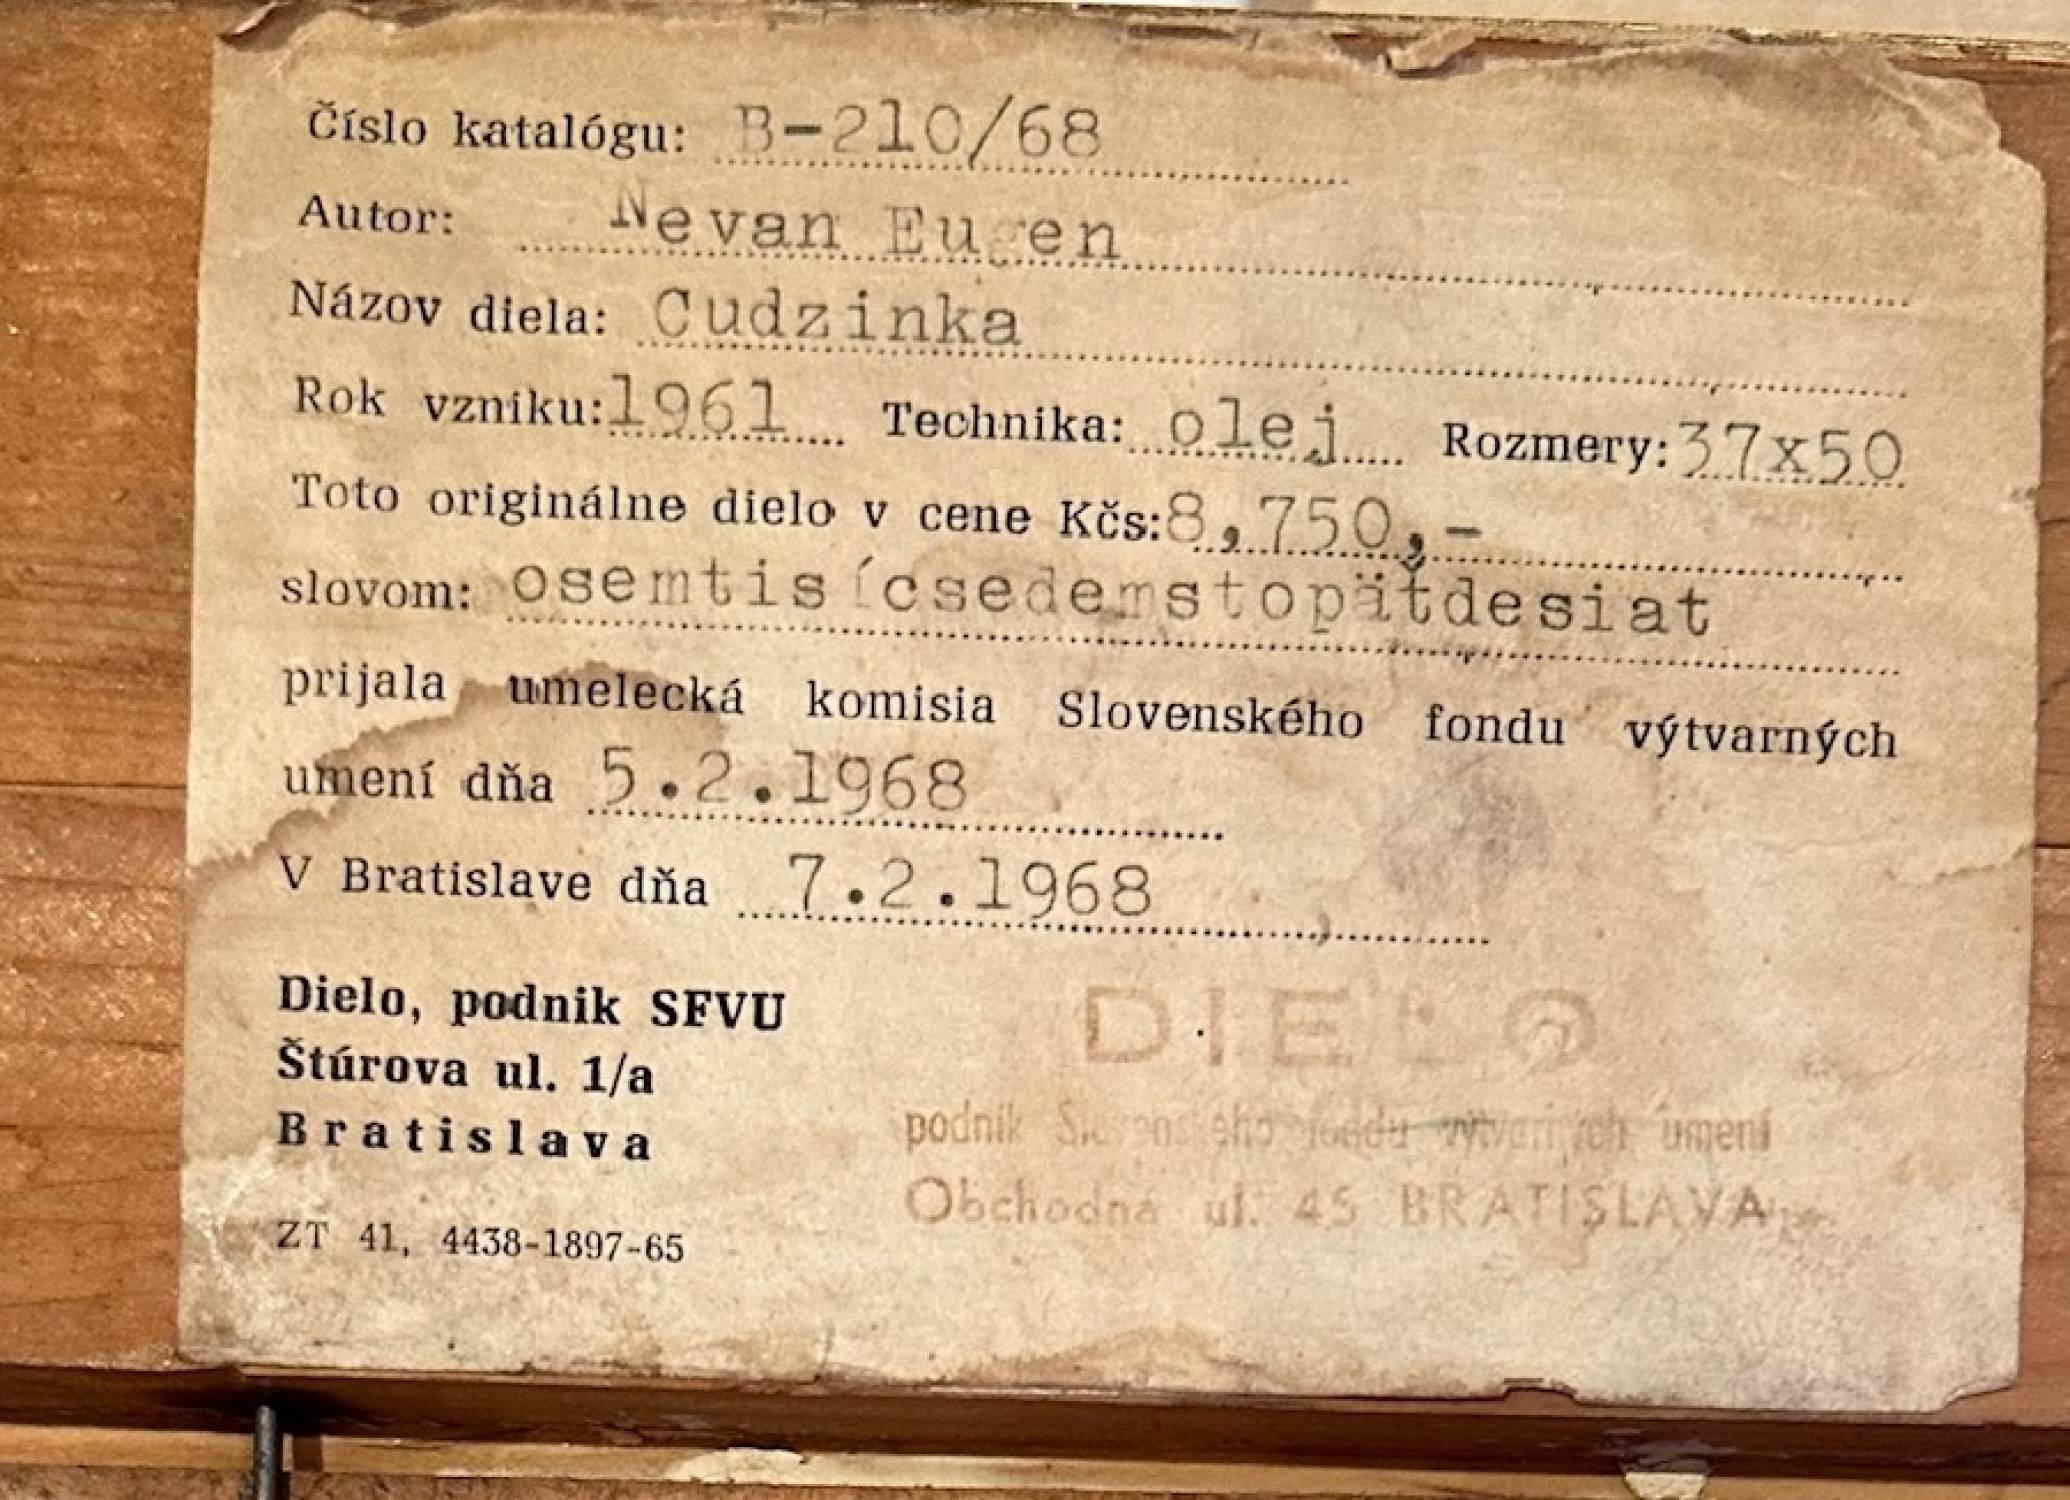 Číslo katalógu: B-210/68
Autor: Nevan Eugen
Názov diela: Cudzinka
Rok vzniku: 1961 Technika: olej Rozmery: 37x50
Toto originálne dielo v cene Kčs: 8,750,-
slovom: osemtisícsedemstopäťdesiat
prijala umelecká komisia Slovenského fondu výtvarných
umení dňa 5.2.1968
V Bratislave dňa 7.2.1968
Dielo, podnik SFVU
Štúrova ul. 1/a
Bratislava
ZT 41, 4438-1897-65
DIELO
podnik Slovenského fondu výtvarných umení
Obchodná ul. 45 BRATISLAVA